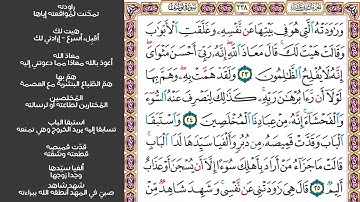 راودته
تمحّلت لمُواقعته إياها
هيت لك
أقبل، أسرع - إرادتي لك
معاذ الله
أعوذ بالله معاذا مما دعوتني إليه
همّ بها
همّ الطّباع البشريّة مع العصمة
المُخلَصين
المختارين لطاعته أو لرسالته
استبقا الباب
تسابقا إليه يريد الخروج وهي تمنعه
قدّت قميصه
قطعته وشقّته
ألفيا سيّدها
وجدا زوجها
شهد شاهد
صبيّ في المهد أنطقه الله ببراءته
٢٣٨
وَرَٰوَدَتْهُ ٱلَّتِى هُوَ فِى بَيْتِهَا عَن نَّفْسِهِۦ وَغَلَّقَتِ ٱلْأَبْوَٰبَ
وَقَالَتْ هَيْتَ لَكَ ۚ قَالَ مَعَاذَ ٱللَّهِ ۖ إِنَّهُۥ رَبِّىٓ أَحْسَنَ مَثْوَاىَ ۖ
إِنَّهُۥ لَا يُفْلِحُ ٱلظَّٰلِمُونَ ٢٣ وَلَقَدْ هَمَّتْ بِهِۦ ۖ وَهَمَّ بِهَا
لَوْلَآ أَن رَّءَا بُرْهَٰنَ رَبِّهِۦ ۚ كَذَٰلِكَ لِنَصْرِفَ عَنْهُ ٱلسُّوٓءَ
وَٱلْفَحْشَآءَ ۚ إِنَّهُۥ مِنْ عِبَادِنَا ٱلْمُخْلَصِينَ ٢٤ وَٱسْتَبَقَا
ٱلْبَابَ وَقَدَّتْ قَمِيصَهُۥ مِن دُبُرٍ وَأَلْفَيَا سَيِّدَهَا لَدَا ٱلْبَابِ ۚ
قَالَتْ مَا جَزَآءُ مَنْ أَرَادَ بِأَهْلِكَ سُوٓءًا إِلَّآ أَن يُسْجَنَ أَوْ عَذَابٌ
أَلِيمٌ ٢٥ قَالَ هِىَ رَٰوَدَتْنِى عَن نَّفْسِى ۚ وَشَهِدَ شَاهِدٌ مِّنْ